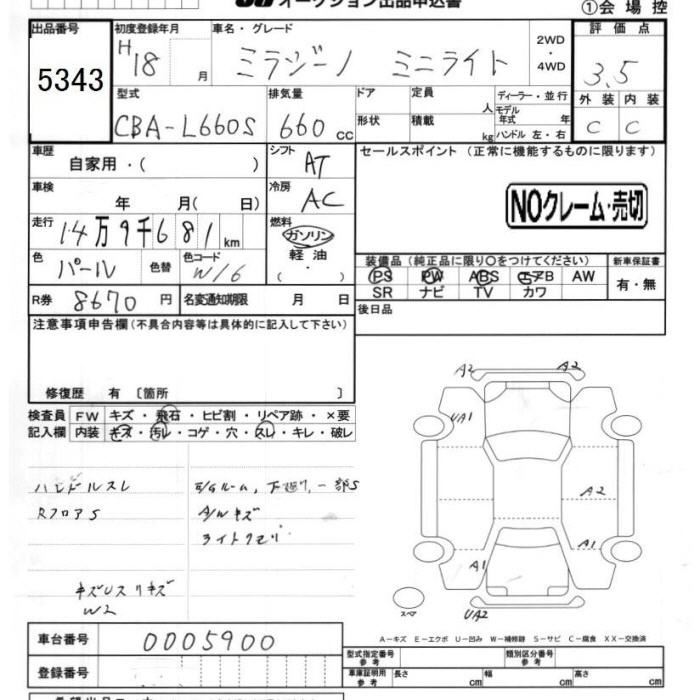 オークション出品申込書
①会場控
出品番号
5343
初度登録年月
H18 月
車名・グレード
ミラジーノ ミニライト
2WD・4WD
評価点
3.5
外装 内装
C C
型式
CBA-L660S
排気量
660 cc
ドア形状
定員 人
積載 kg
ディーラー・並行
モデル年式 年
ハンドル 左・右
車歴
自家用・( )
シフト
AT
セールスポイント（正常に機能するものに限ります）
NOクレーム・売切
車検
年 月( 日)
冷房
AC
走行
14万9千681km
燃料
ガソリン
軽油
( ・ )
色
パール
色替
色コード
W16
装備品（純正品に限り○をつけてください）
PS PW ABS エアB AW
SR ナビ TV カワ
新車保証書
有・無
R券 8670円
名変通知期限 月 日
後日品
注意事項申告欄(不具合内容等は具体的に記入して下さい)
修復歴 有 〔箇所 〕
検査員記入欄
FW キズ・飛石・ヒビ割・リペア跡・×要
内装 キズ・汚レ・コゲ・穴・スレ・キレ・破レ
ハンドルスレ
RフロアS
E/Gルーム，下廻リ，一部S
A/Wキズ
ライトクモリ
W2
A2
A2
UA1
A2
A1
A1
UA2
スペア
A－キズ E－エクボ U－凹み W－補修跡 S－サビ C－腐食 XX－交換済
車台番号
0005900
登録番号
型式指定番号 参考
類別区分番号 参考
車庫証明用 参考
長さ cm
幅 cm
高さ cm